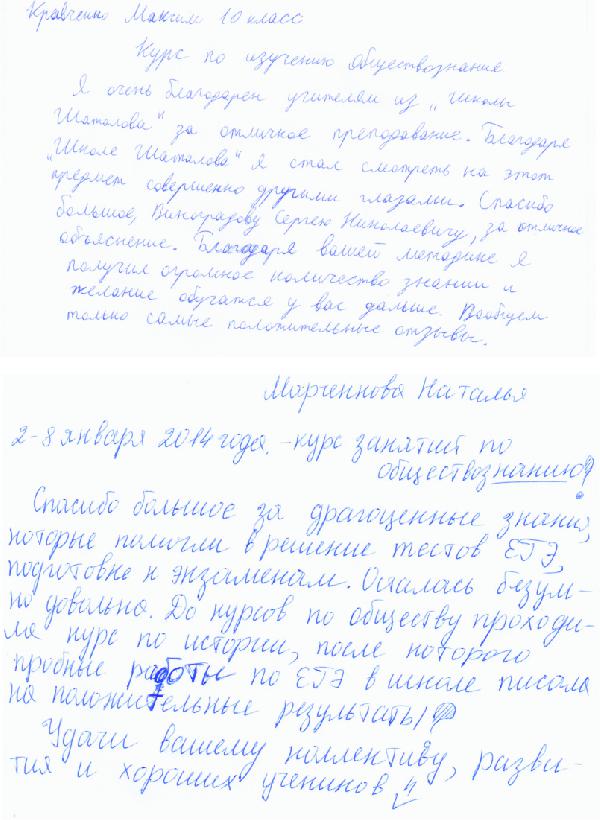 Кравченко Максим 10 класс
Курс по изучению обществознание
Я очень благодарен учителям из „Школы
Шаталова“ за отличное преподавание. Благодаря
„Школе Шаталова“ я стал смотреть на этот
предмет совершенно другими глазами. Спасибо
большое, Виноградову Сергею Николаевичу, за отличное
объяснение. Благодаря вашей методике я
получил огромное количество знании и
желание обучатся у вас дальше. Вообщем
только самые положительные отзывы.
Марченкова Наталья
2-8 января 2014 года. - курс занятий по
обществознанию
Спасибо большое за драгоценные знания,
которые помогли в решение тестов ЕГЭ,
подготовке к экзаменам. Осталась безум-
но довольна. До курсов по обществу проходи-
ла курс по истории, после которого
пробные работы по ЕГЭ в школе писала
на положительные результаты!
Удачи вашему коллективу, разви-
тия и хороших учеников!!